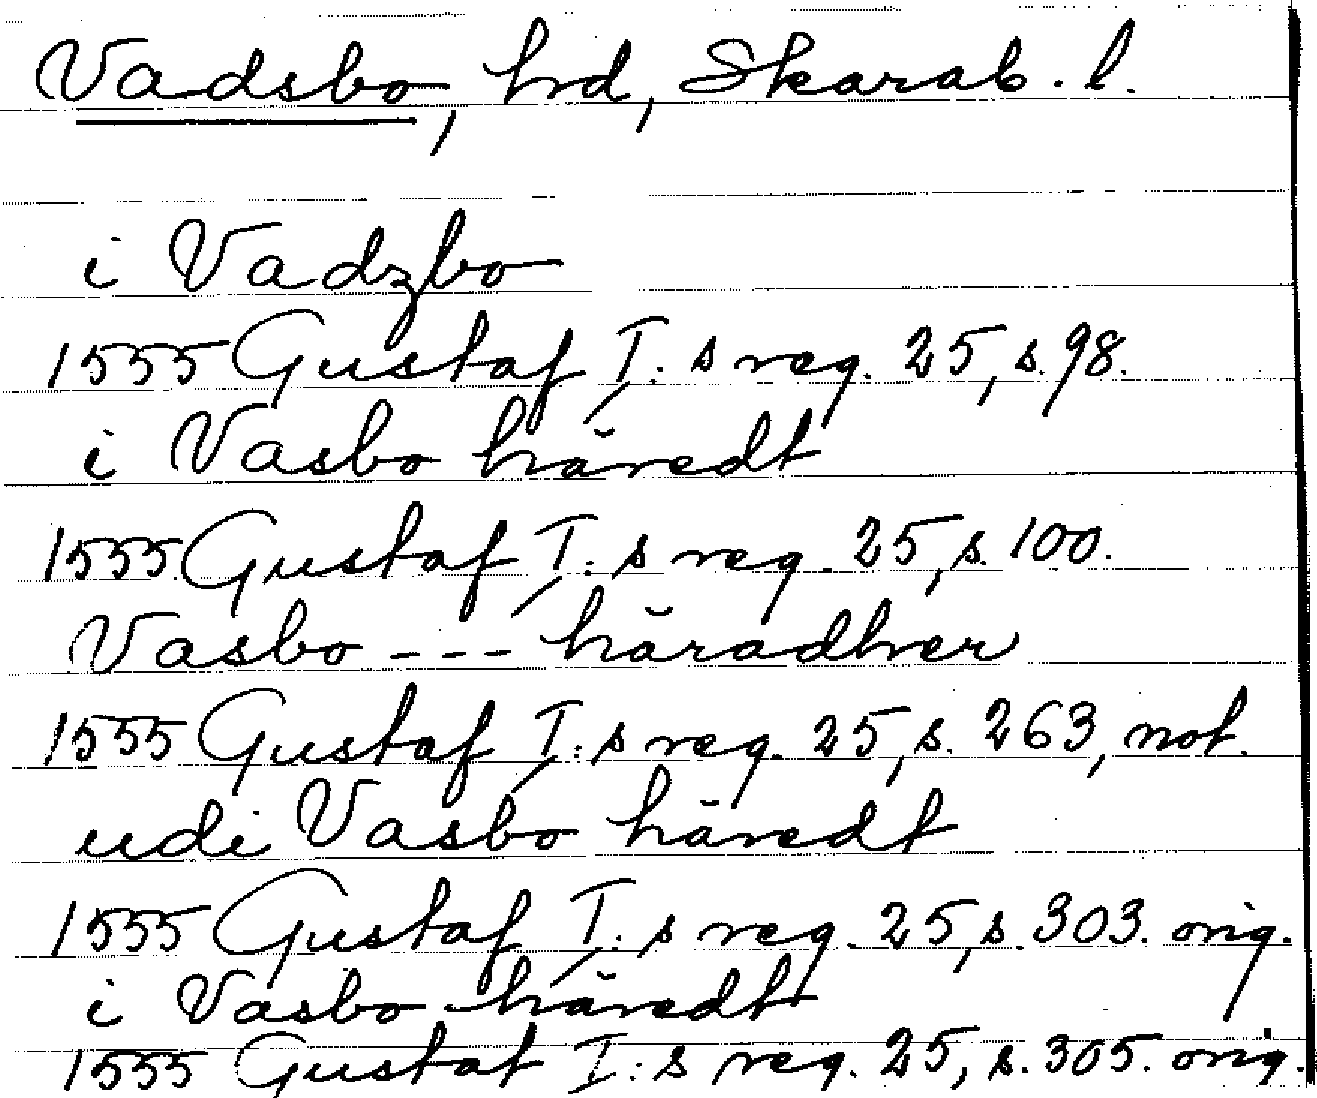 Vadsbo, hrd, Skarab. l.
i Vadzbo
1555 Gustaf I:s reg. 25, s. 98.
i Vasbo häredt
1555 Gustaf I:s reg. 25, s. 100.
Vasbo --- häradher
1555 Gustaf I:s reg. 25, s. 263, not.
udi Vasbo häredt
1555 Gustaf I:s reg. 25, s. 303. orig.
i Vasbo häredt
1555 Gustaf I:s reg. 25, s. 305. orig.